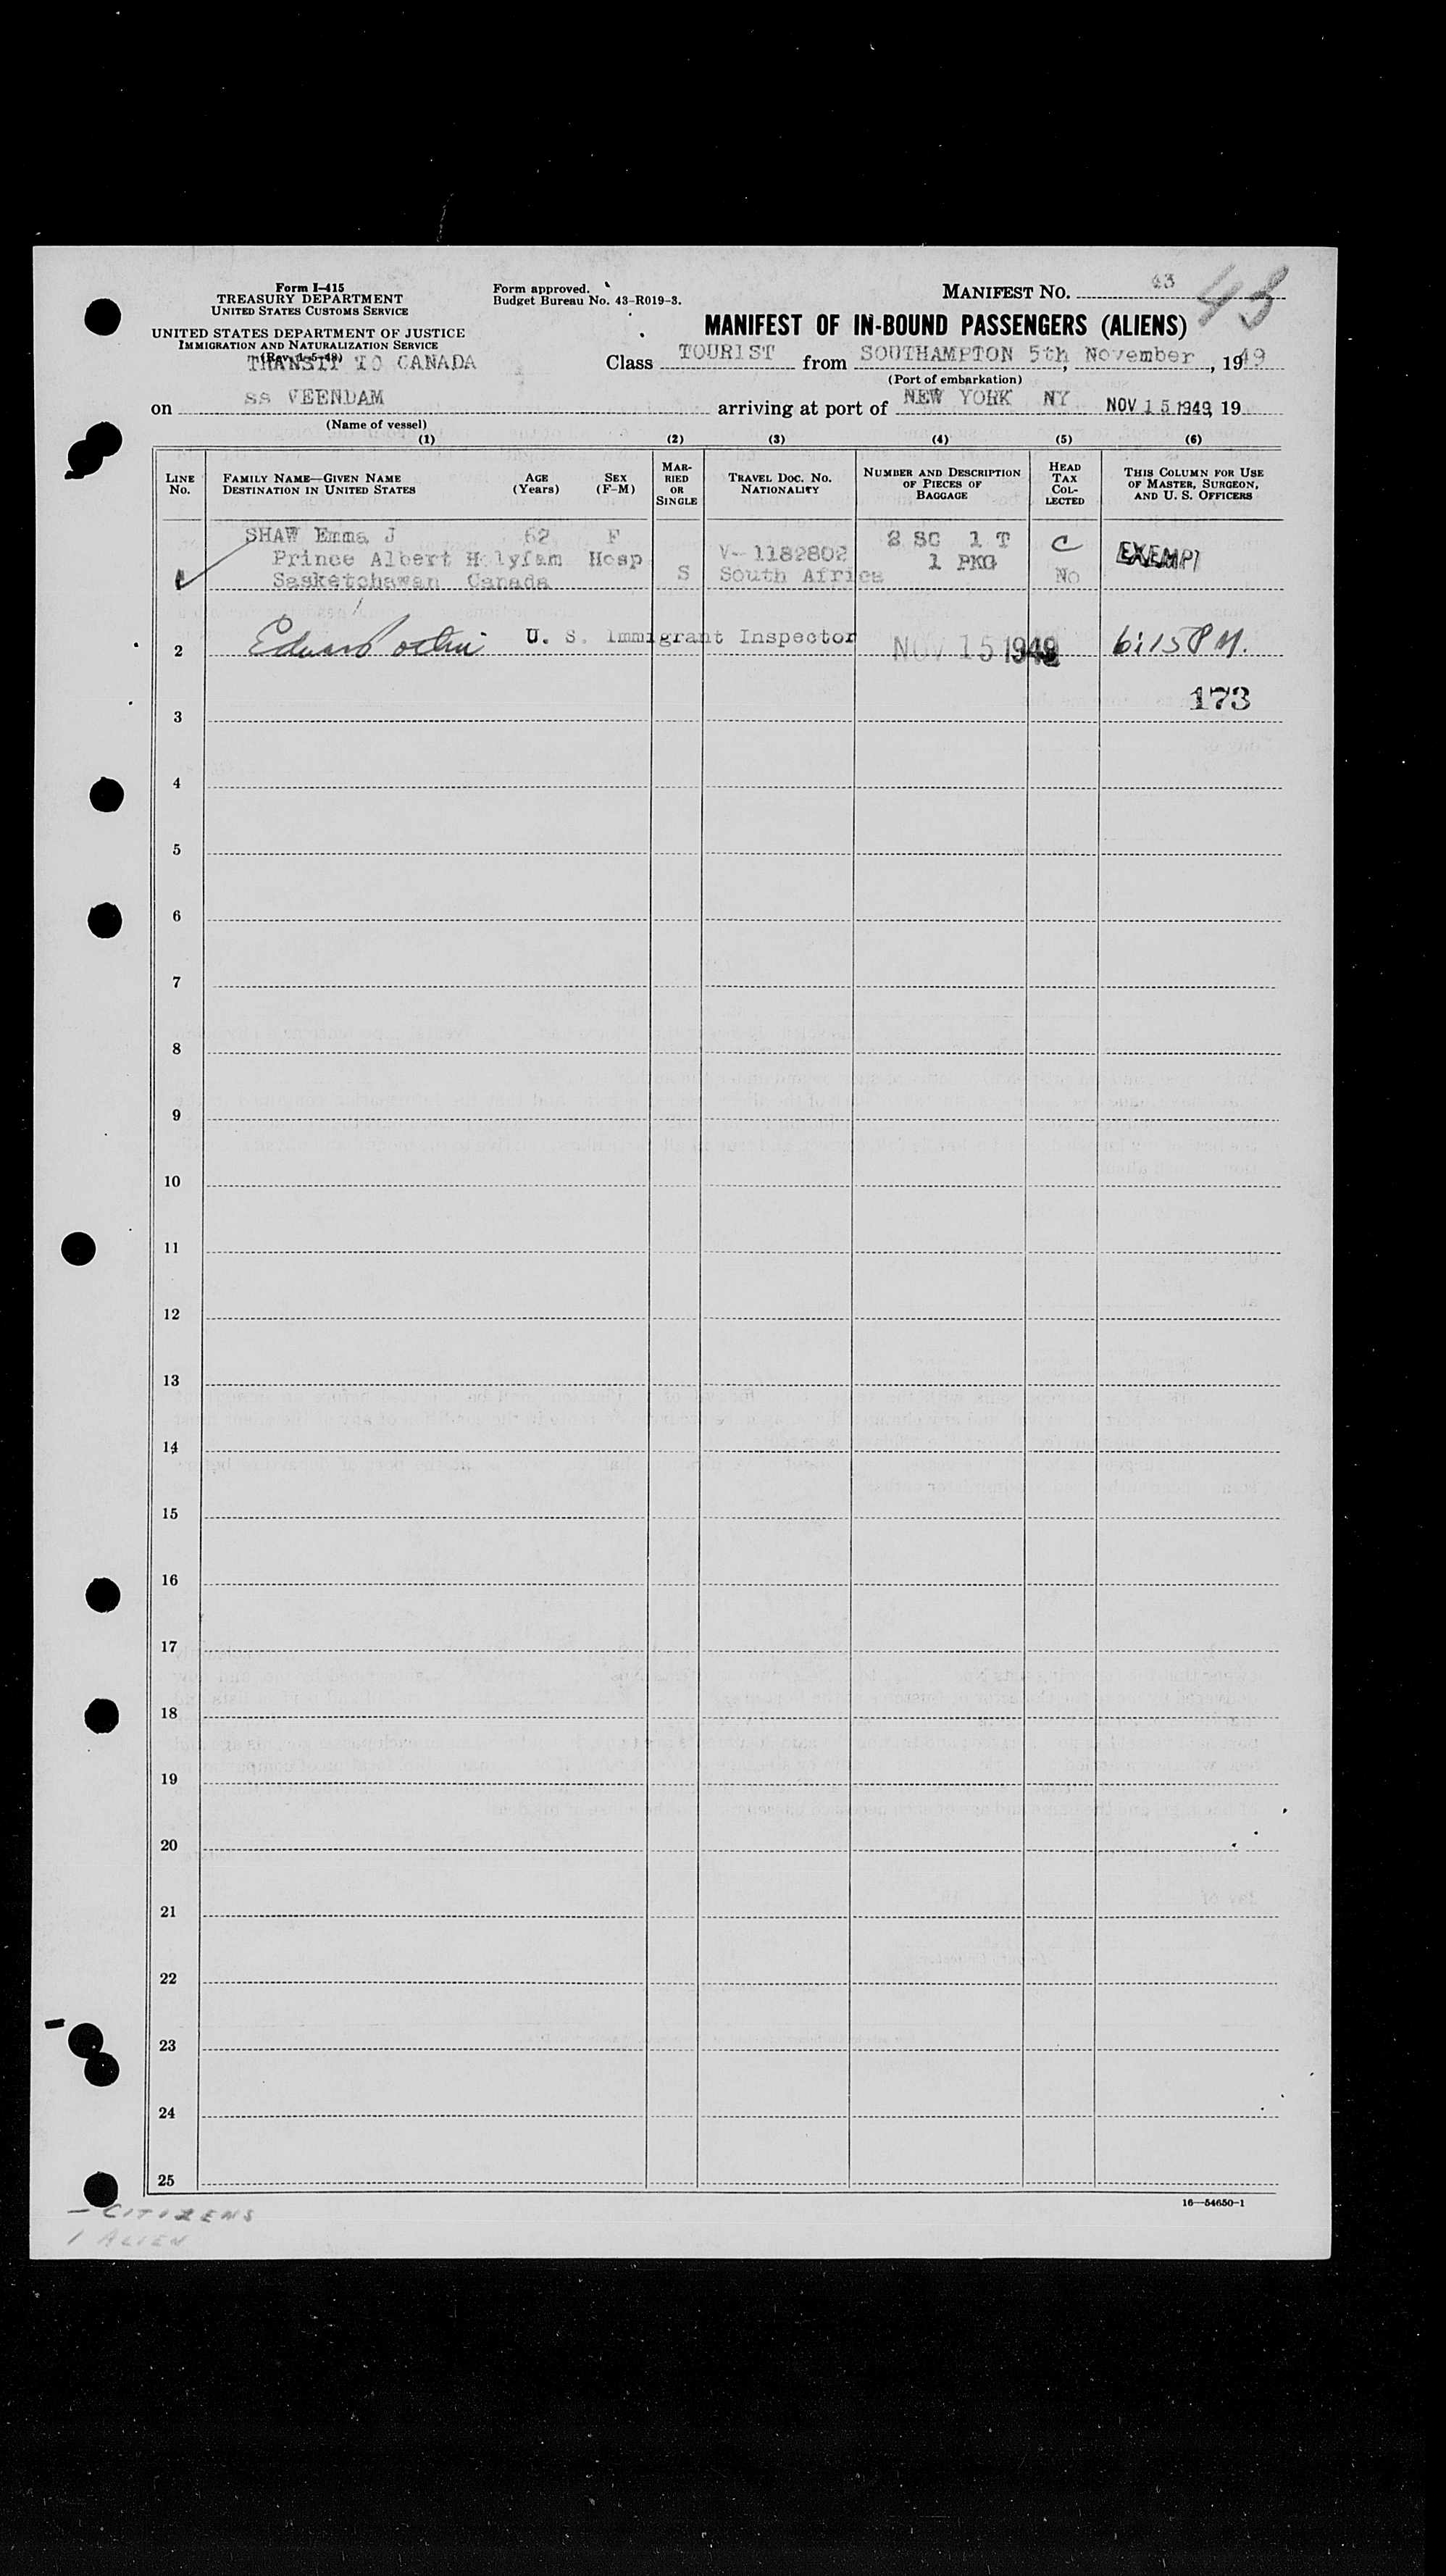 Form I-415
TREASURY DEPARTMENT
UNITED STATES CUSTOMS SERVICE
UNITED STATES DEPARTMENT OF JUSTICE
IMMIGRATION AND NATURALIZATION SERVICE
(Rev. 1-5-48)
TRANSIT TO CANADA
Form approved.
Budget Bureau No. 43-R019-3.
MANIFEST NO. 43
43
MANIFEST OF IN-BOUND PASSENGERS (ALIENS)
Class TOURIST from SOUTHAMPTON 5th November, 1949
(Port of embarkation)
on ss VEENDAM arriving at port of NEW YORK NY NOV 15 1949, 19
(Name of vessel)
(1) (2) (3) (4) (5) (6)
LINE No. FAMILY NAME—GIVEN NAME DESTINATION IN UNITED STATES AGE (Years) SEX (F-M) MARRIED OR SINGLE TRAVEL DOC. NO. NATIONALITY NUMBER AND DESCRIPTION OF PIECES OF BAGGAGE HEAD TAX COLLECTED THIS COLUMN FOR USE OF MASTER, SURGEON, AND U. S. OFFICERS
SHAW Emma J 62 F 2 SC 1 T C EXEMPT
Prince Albert Holyfam Hosp V- 1182802 1 PKG
1 Sasketchawan Canada S South Africa No
2 Edward U. S. Immigrant Inspector NOV 15 1949 6:15 PM.
173
3
4
5
6
7
8
9
10
11
12
13
14
15
16
17
18
19
20
21
22
23
24
25
16—54650-1
— CITIZENS
1 ALIEN